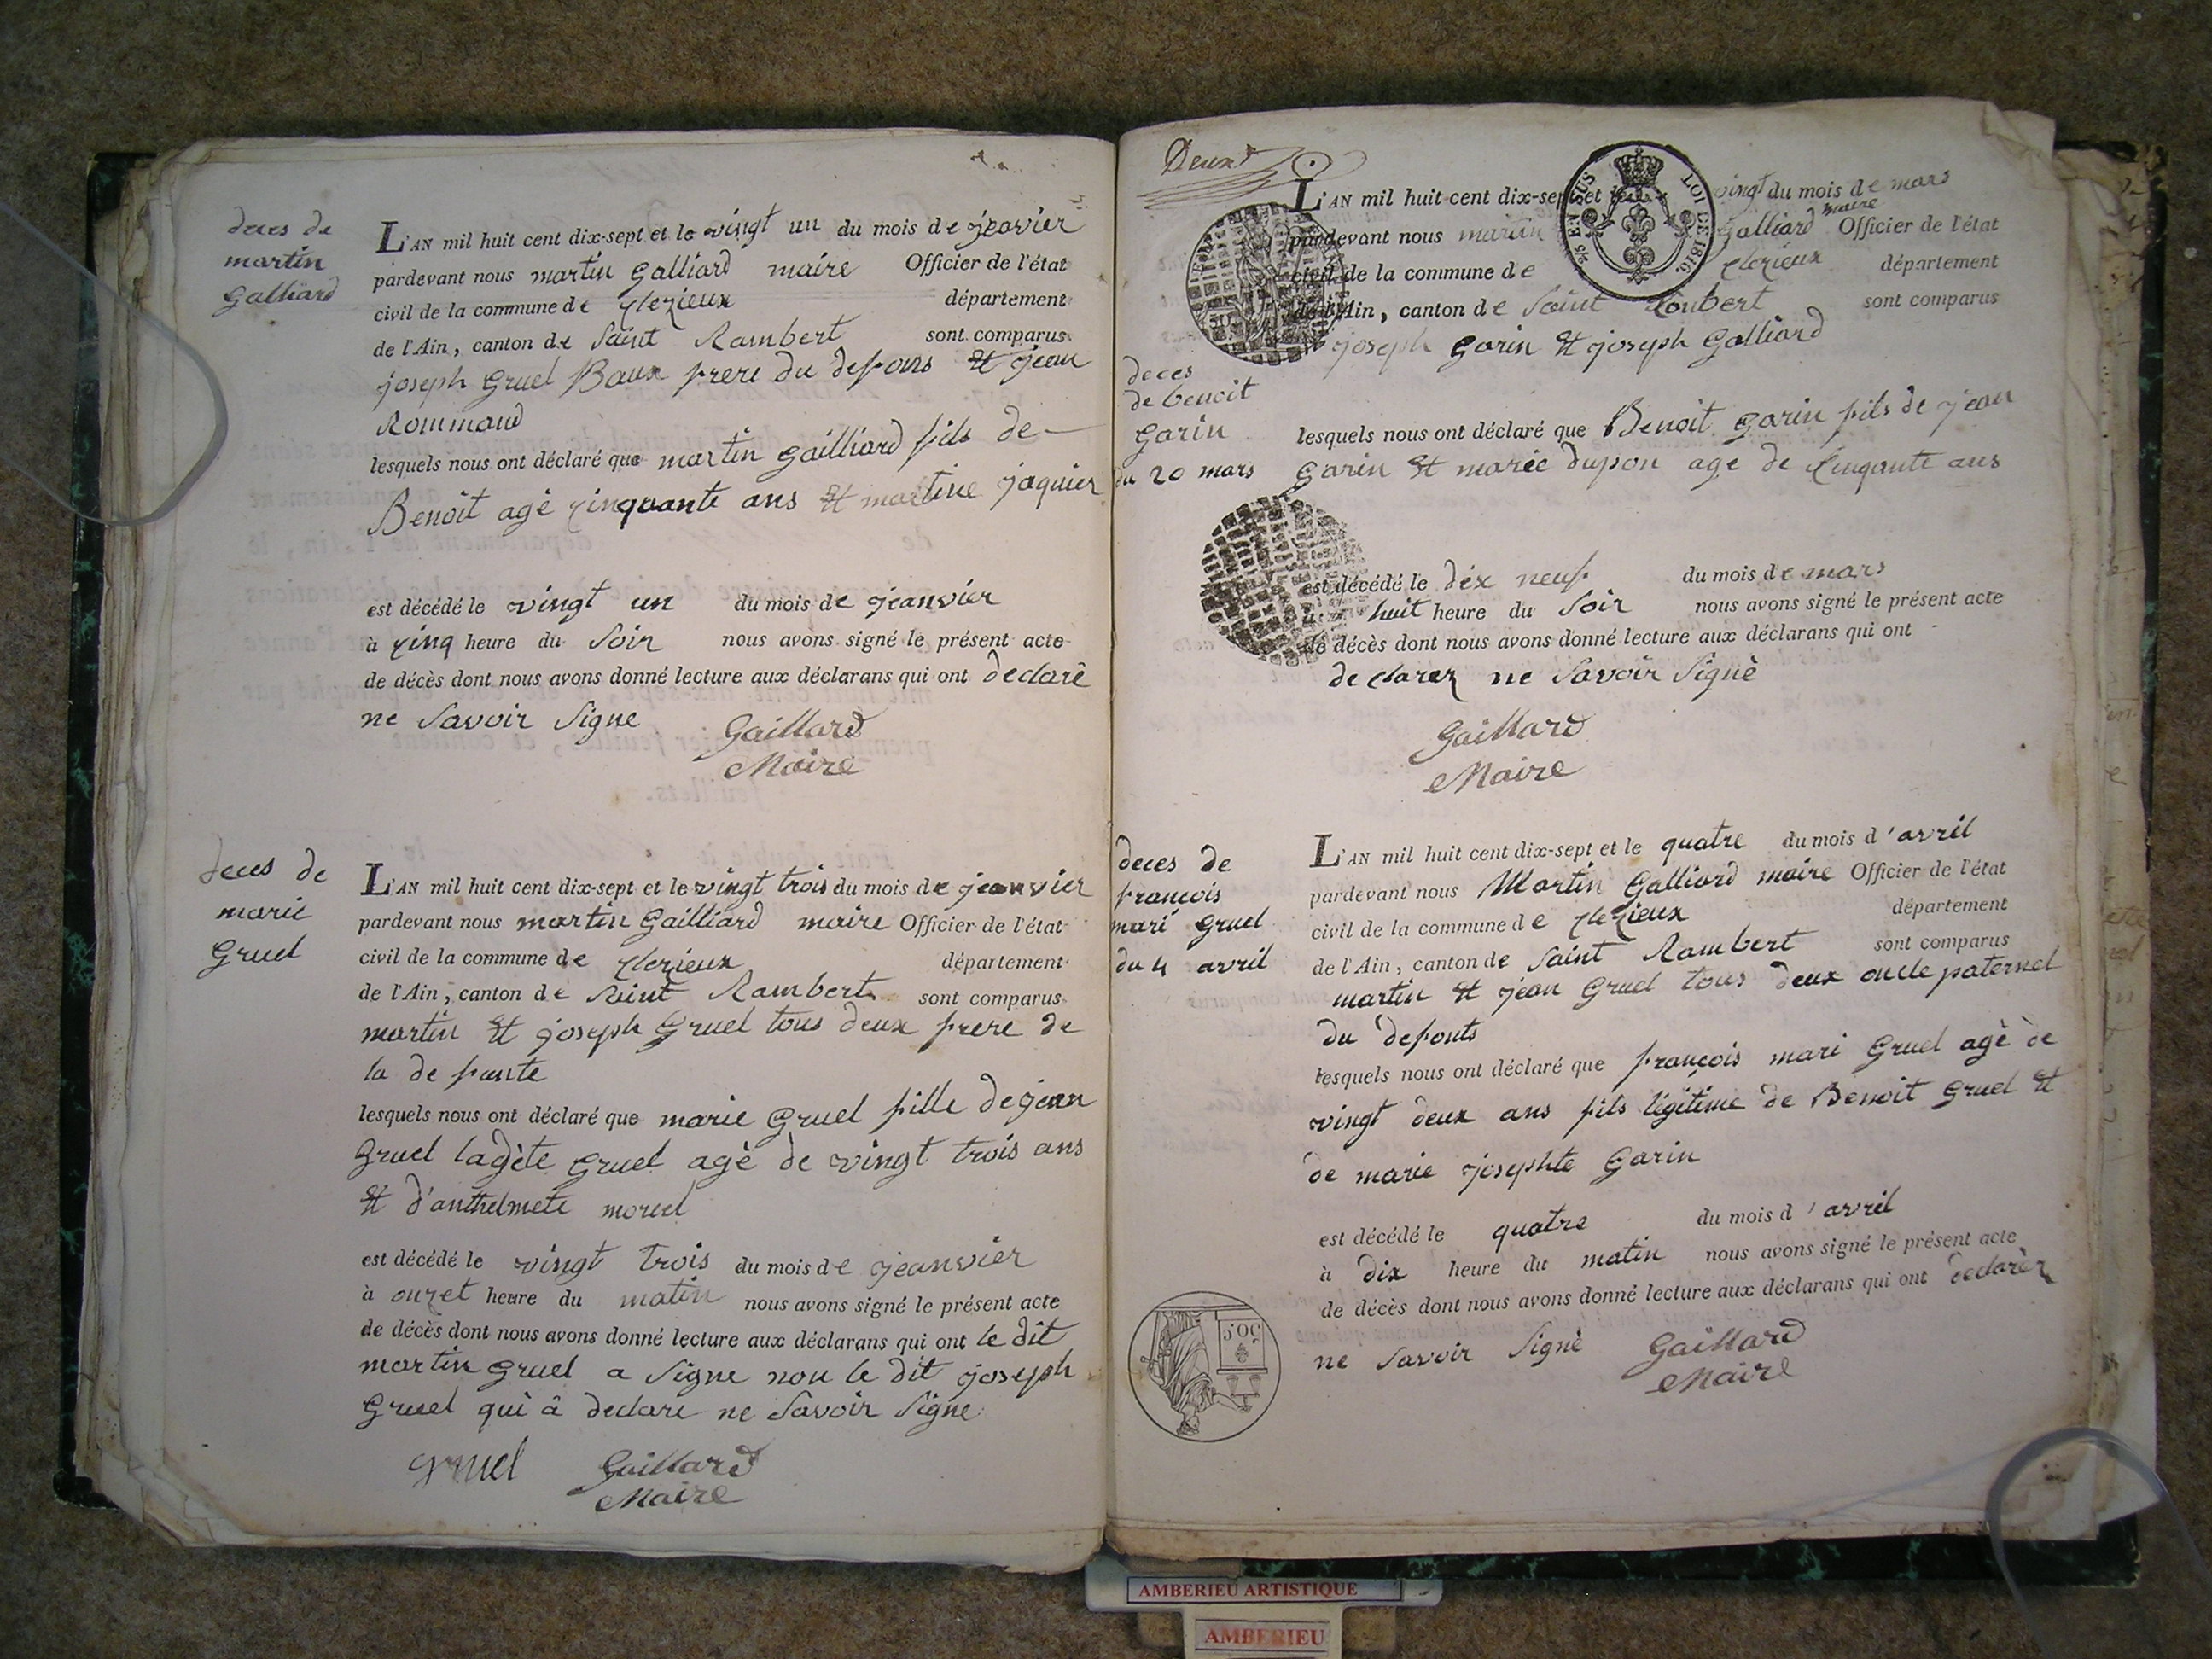 deces de
martin
Galliard
L'AN mil huit cent dix-sept et le vingt un du mois de jeavier
pardevant nous martin Galliard maire Officier de l'état
civil de la commune de Clezieux département
de l'Ain, canton de Saint Rambert sont comparus
joseph Gruel Baux frere du defons et jean
Rommand
lesquels nous ont déclaré que martin Gailliard fils de
Benoit agé cinquante ans et martine jaquier
est décédé le vingt un du mois de jeanvier
à cinq heure du Soir nous avons signé le présent acte
de décès dont nous avons donné lecture aux déclarans qui ont declaré
ne Savoir Signe
Gaillard
Maire
deces de
marie
Gruel
L'AN mil huit cent dix-sept et le vingt trois du mois de jeanvier
pardevant nous martin Gailliard maire Officier de l'état
civil de la commune de Clezieux département
de l'Ain, canton de Saint Rambert sont comparus
martin et joseph Gruel tous deux frere de
la de funte
lesquels nous ont déclaré que marie Gruel fille de jean
Gruel lagète Gruel agè de vingt trois ans
et d'anthelmete morel
est décédé le vingt trois du mois de jeanvier
à onzet heure du matin nous avons signé le présent acte
de décès dont nous avons donné lecture aux déclarans qui ont le dit
martin Gruel a Signe non le dit joseph
Gruel qui â declare ne Savoir Signe
gruel Gaillard
Maire
Deux
L'AN mil huit cent dix-sept et le vingt du mois de mars
pardevant nous martin Galliard maire Officier de l'état
civil de la commune de Clezieux département
de l'Ain, canton de Saint Ranbert sont comparus
joseph Garin et joseph Galliard
deces
de benoit
Garin
du 20 mars
lesquels nous ont déclaré que Benoit Garin fils de jean
Garin et marie dupon age de Cinqante ans
est décédé le dix neuf du mois de mars
à huit heure du Soir nous avons signé le présent acte
de décès dont nous avons donné lecture aux déclarans qui ont
declarez ne Savoir Signè
Gaillard
Maire
5/5 EN SUS LOI DE 1816.
deces de
françois
mari Gruel
du 4 avril
L'AN mil huit cent dix-sept et le quatre du mois d'avril
pardevant nous Martin Galliard maire Officier de l'état
civil de la commune de Clezieux département
de l'Ain, canton de Saint Rambert sont comparus
martin et jean Gruel tous deux oncle paternel
du defonts
lesquels nous ont déclaré que françois mari Gruel agè de
vingt deux ans fils légitime de Benoit Gruel et
de marie josephte Garin
est décédé le quatre du mois d'avril
à dix heure du matin nous avons signé le présent acte
de décès dont nous avons donné lecture aux déclarans qui ont declarèz
ne Savoir Signè Gaillard
Maire
50C
AMBERIEU ARTISTIQUE
AMBERIEU